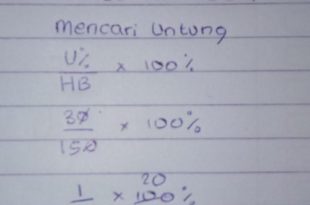 Mencari Untung
U%
HB × 100%
30
150 × 100%
20
1 × 100%